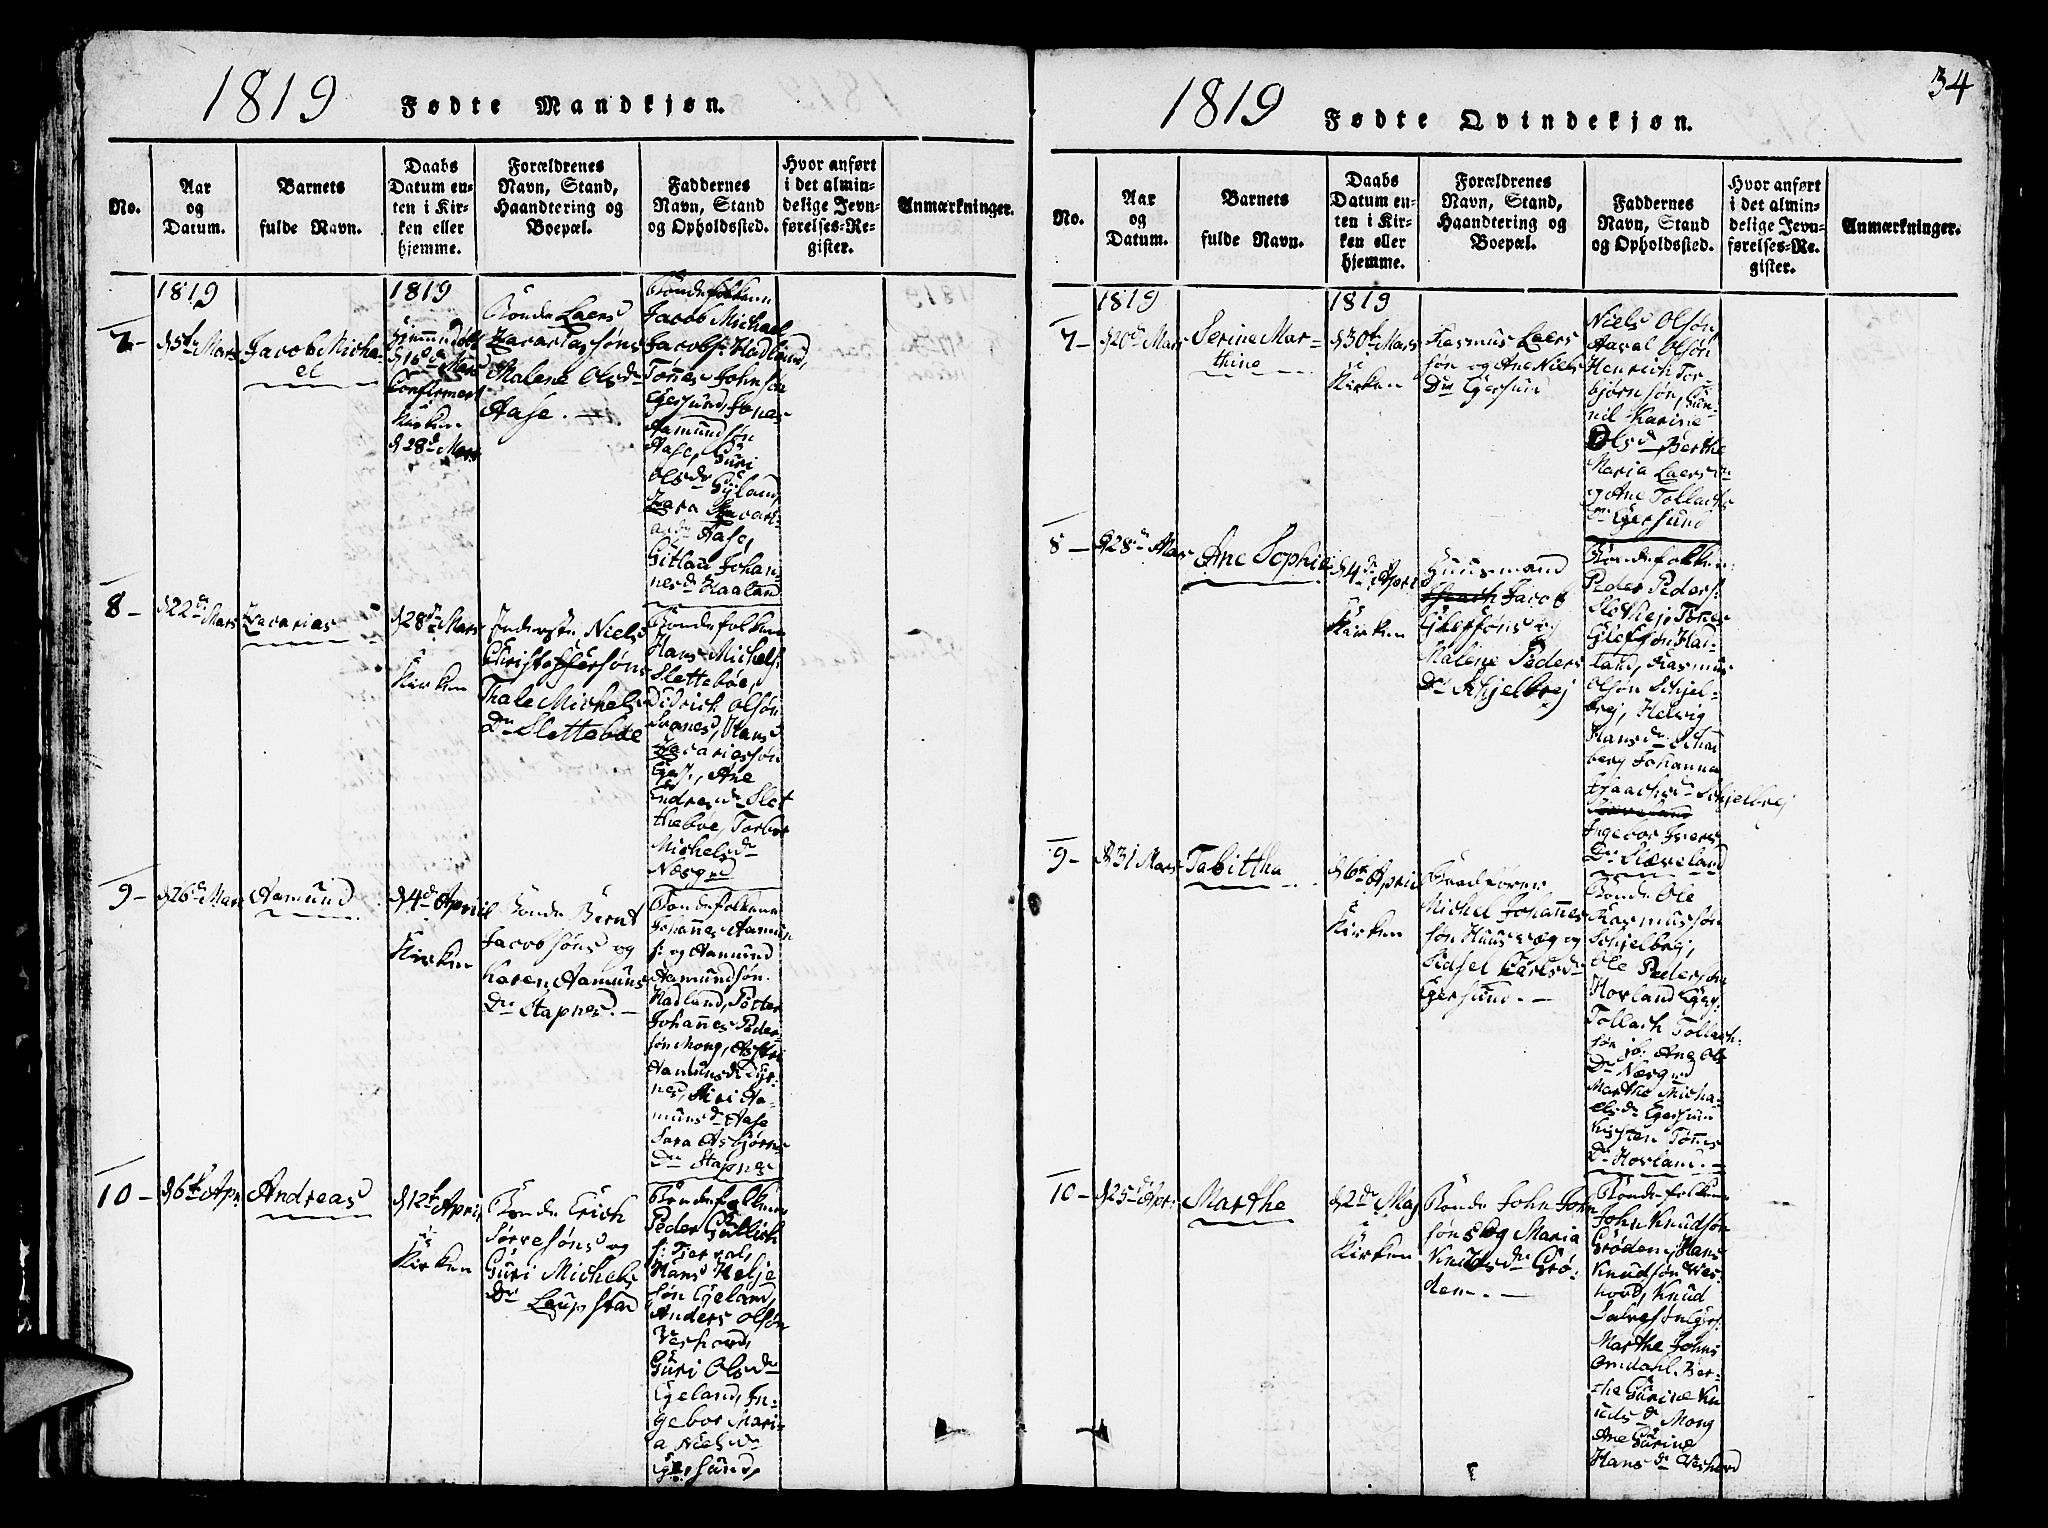 1819 Fødte Mandkjøn.
No.
Aar
og
Datum.
Barnets
fulde Navn.
Daabs
Datum en-
ten i Kir-
ken eller
hjemme.
Forældrenes
Navn, Stand,
Haandtering og
Boepæl.
Faddernes
Navn, Stand
og Opholdssted.
Hvor anført
i det almin-
delige Jevn-
førelses-Re-
gister.
Anmærkninger.
1819
7-
d 5te Mars
Jacob Micha-
el
1819
Hiemmedøbt
Confirmert
i
Kirken
d 28de Mars
Bonde Laers
Zacariassøns
Malene Olsdr
Aase. —
Bondefolkene
Jacob Michael
Jacobs: Hadland,
Tønnes Johnsøn
Egersund, Jonas
Aamundsøn
Aase, Guri
Olsdr Eyland,
Zara Zacari-
asdr Aase,
Gitlau Johan-
nesdr Haaland
8-
d 22de Mars
Zacarias
d 28de Mars
i
Kirken
Inderste, Niels
Christoffersøns
Thale Michels
Dr Slettebøe
Bondefolkene
Hans Michels:
Slettebøe,
Didrich Olsøn
Svanes, Hans
Zacariassøn
Eges:, Ane
Endresdr Slet
thebøe, Torbor
Michelsdr
Næsgrd
9-
d 26de Mars
Aamund
d 4de April
i
Kirken
Bonde Bernt
Jacobsøns og
Karen Aamunds
Dr Stapnes. —
Bondefolkene
Johannes Aamun
s: og Aamund
Aamundsøn
Hadland, Peter
Johannes Peder-
søn Mong, Astri
Aamunsdr Styr-
nes, Siri Aa-
munsdr Aase
Sara Asbjørns
Dr Stapnes
10-
d 6te Apr:
Andreas
d 12te April
i
Kirken
Bonde Erich
Sørresøns og
Guri Michels
Dr Leupstad
Bondefolkene
Peder Gullich
s: Tjersval,
Hans Helje
søn Egeland,
Anders Olsøn
Veshovd,
Guri Olsdr
Egeland, In-
gebor Mari-
a Nielsdr
Egersund,
34
1819 Fødte Qvindekjøn.
No.
Aar
og
Datum.
Barnets
fulde Navn.
Daabs
Datum en-
ten i Kir-
ken eller
hjemme.
Forældrenes
Navn, Stand,
Haandtering og
Boepæl.
Faddernes
Navn, Stand
og Opholdssted.
Hvor anført
i det almin-
delige Jevn-
førelses-Re-
gister.
Anmærkninger.
1819
7-
d 20de Mars
Serine Mar-
thine
1819
d 30te Mars
i
Kirken
Rasmus Laers
søn og Ane Niels
Dr Egersund
Niels Olsøn
Aaval Olsøn
Henrich Tor-
bjørnsøn, Gun-
nil Karine
Olsdr Berthe
Maria Laersdr
og Ane Tollachs
Dr Egersund
8-
d 28de Mars
Ane Sophie
d 4de April
i
Kirken
Huusmand
Jacob
og
Malene Peders
Dr Schjelbrej
Bondefolkene
Peder Peders:
Slettlej, Tønes
Had-
land, Rasmus
Olsøn Schjel-
brej, Helvig
Hansdr
berg Johanna
Isaachsdr Schjelbrej
Ingebor Iversr
Dr Skæveland
9-
d 31 Mars
Tabittha
d 6te April
i
Kirken
Michel Johannes
søn Huusvæg og
Carlsdr
Egersund. —
Bonde Ole
Rasmussøn
Schjelbrej,
Ole Pedersøn
Hovland Eger:
Tollach Tollach-
søn ib: Ane Ols
Dr Næsgrd
Marthe Micha-
elsdr Egersun
Kirsten Tønes
Dr Hovland. —
10-
d 25de Apr:
Marthe
d 2de Maj
i
Kirken
Bonde John John
søns og Maria
Knudsdr Grø-
dem. —
Bondefolkene
John Knudsøn
Grødem, Hans
Knudsøn Ves-
hovd, Knud
Salvesøn Egers:
Marthe Johns
Omdahl. Ber-
the Gurine Kn
udsdr Mong
Ane Gurine
Hansdr Veshovd